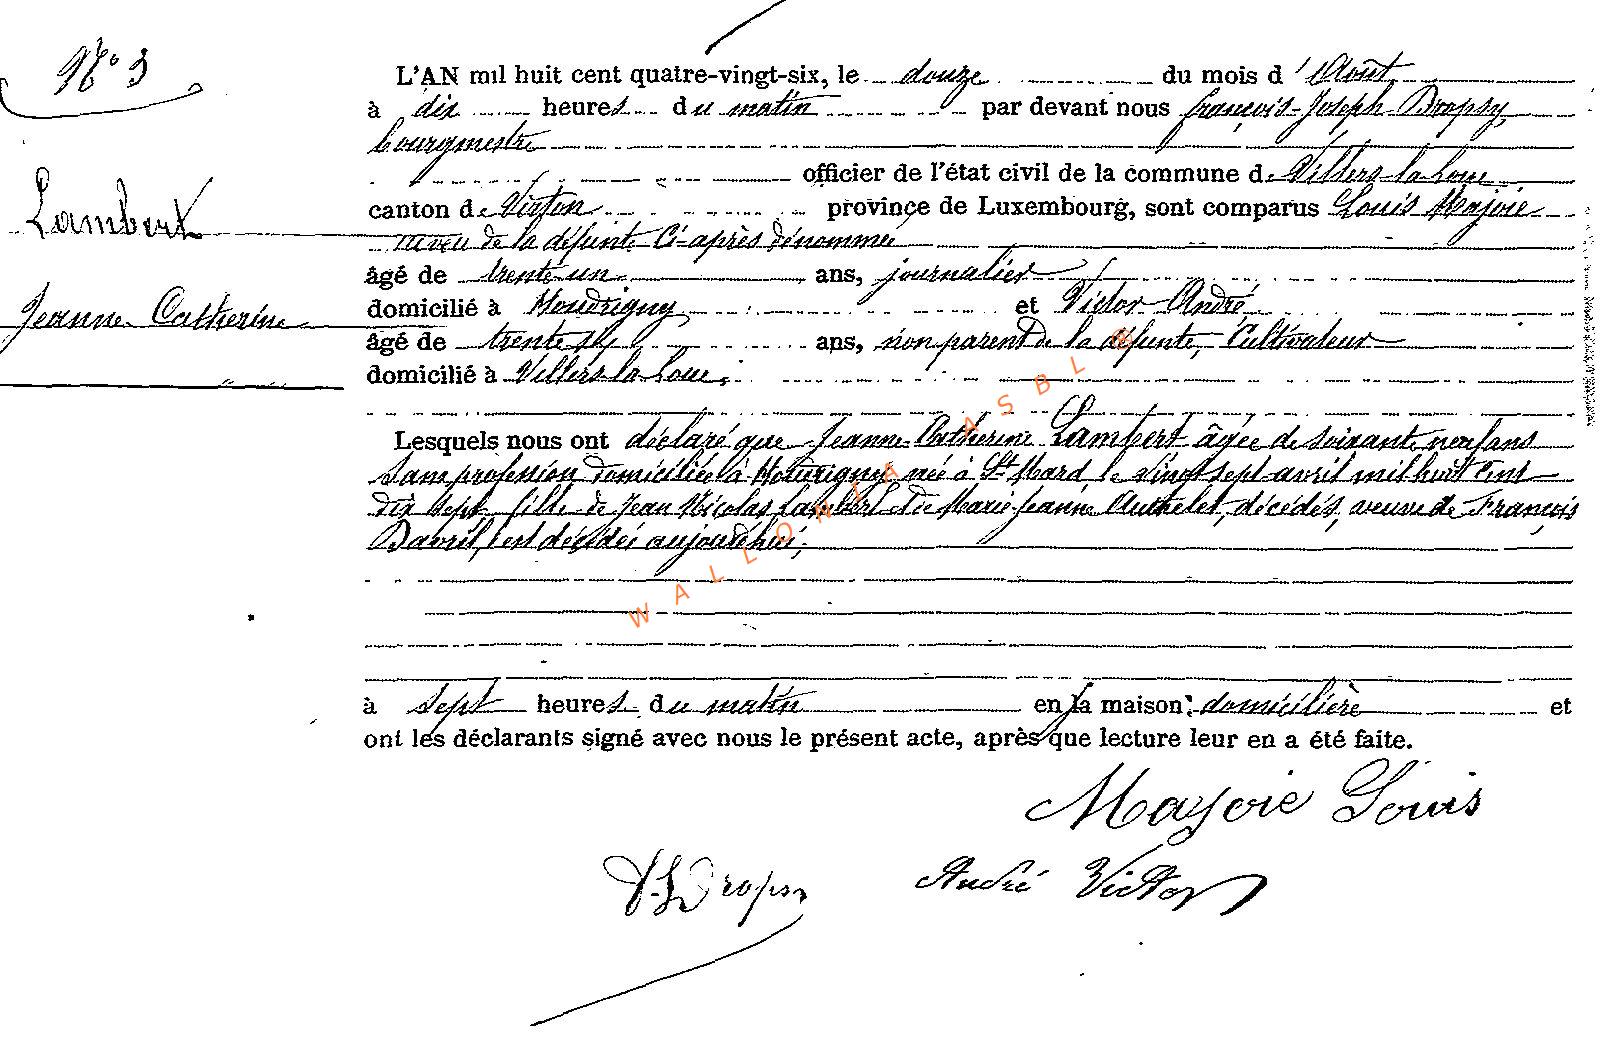 N° 3
Lambert
Jeanne Catherine
L'AN mil huit cent quatre-vingt-six, le douze du mois d'Août
à dix heures du matin par devant nous françois-Joseph Dropsy,
bourgmestre
officier de l'état civil de la commune de Villers-la-Loue
canton de Virton province de Luxembourg, sont comparus Louis Majoie
neveu de la défunte Ci-après dénommée
âgé de trente un ans, journalier
domicilié à Houdrigny et Victor André
âgé de trente ans, non parent de la défunte, Cultivateur
domicilié à Villers la Loue,
Lesquels nous ont déclaré que Jeanne Catherine Lambert âgée de soixante neuf ans
Sans profession domiciliée à Houdrigny née à St Mard le vingt sept avril mil huit cent
dix sept fille de Jean Nicolas Lambert et de Marie-Jeanne Authelet, décédés, veuve de François
Davril, est décédée aujourd'hui,
à sept heures du matin en la maison domicilière et
ont les déclarants signé avec nous le présent acte, après que lecture leur en a été faite.
Majoie Louis
Dropsy André Victor
WALLONIA ASBL